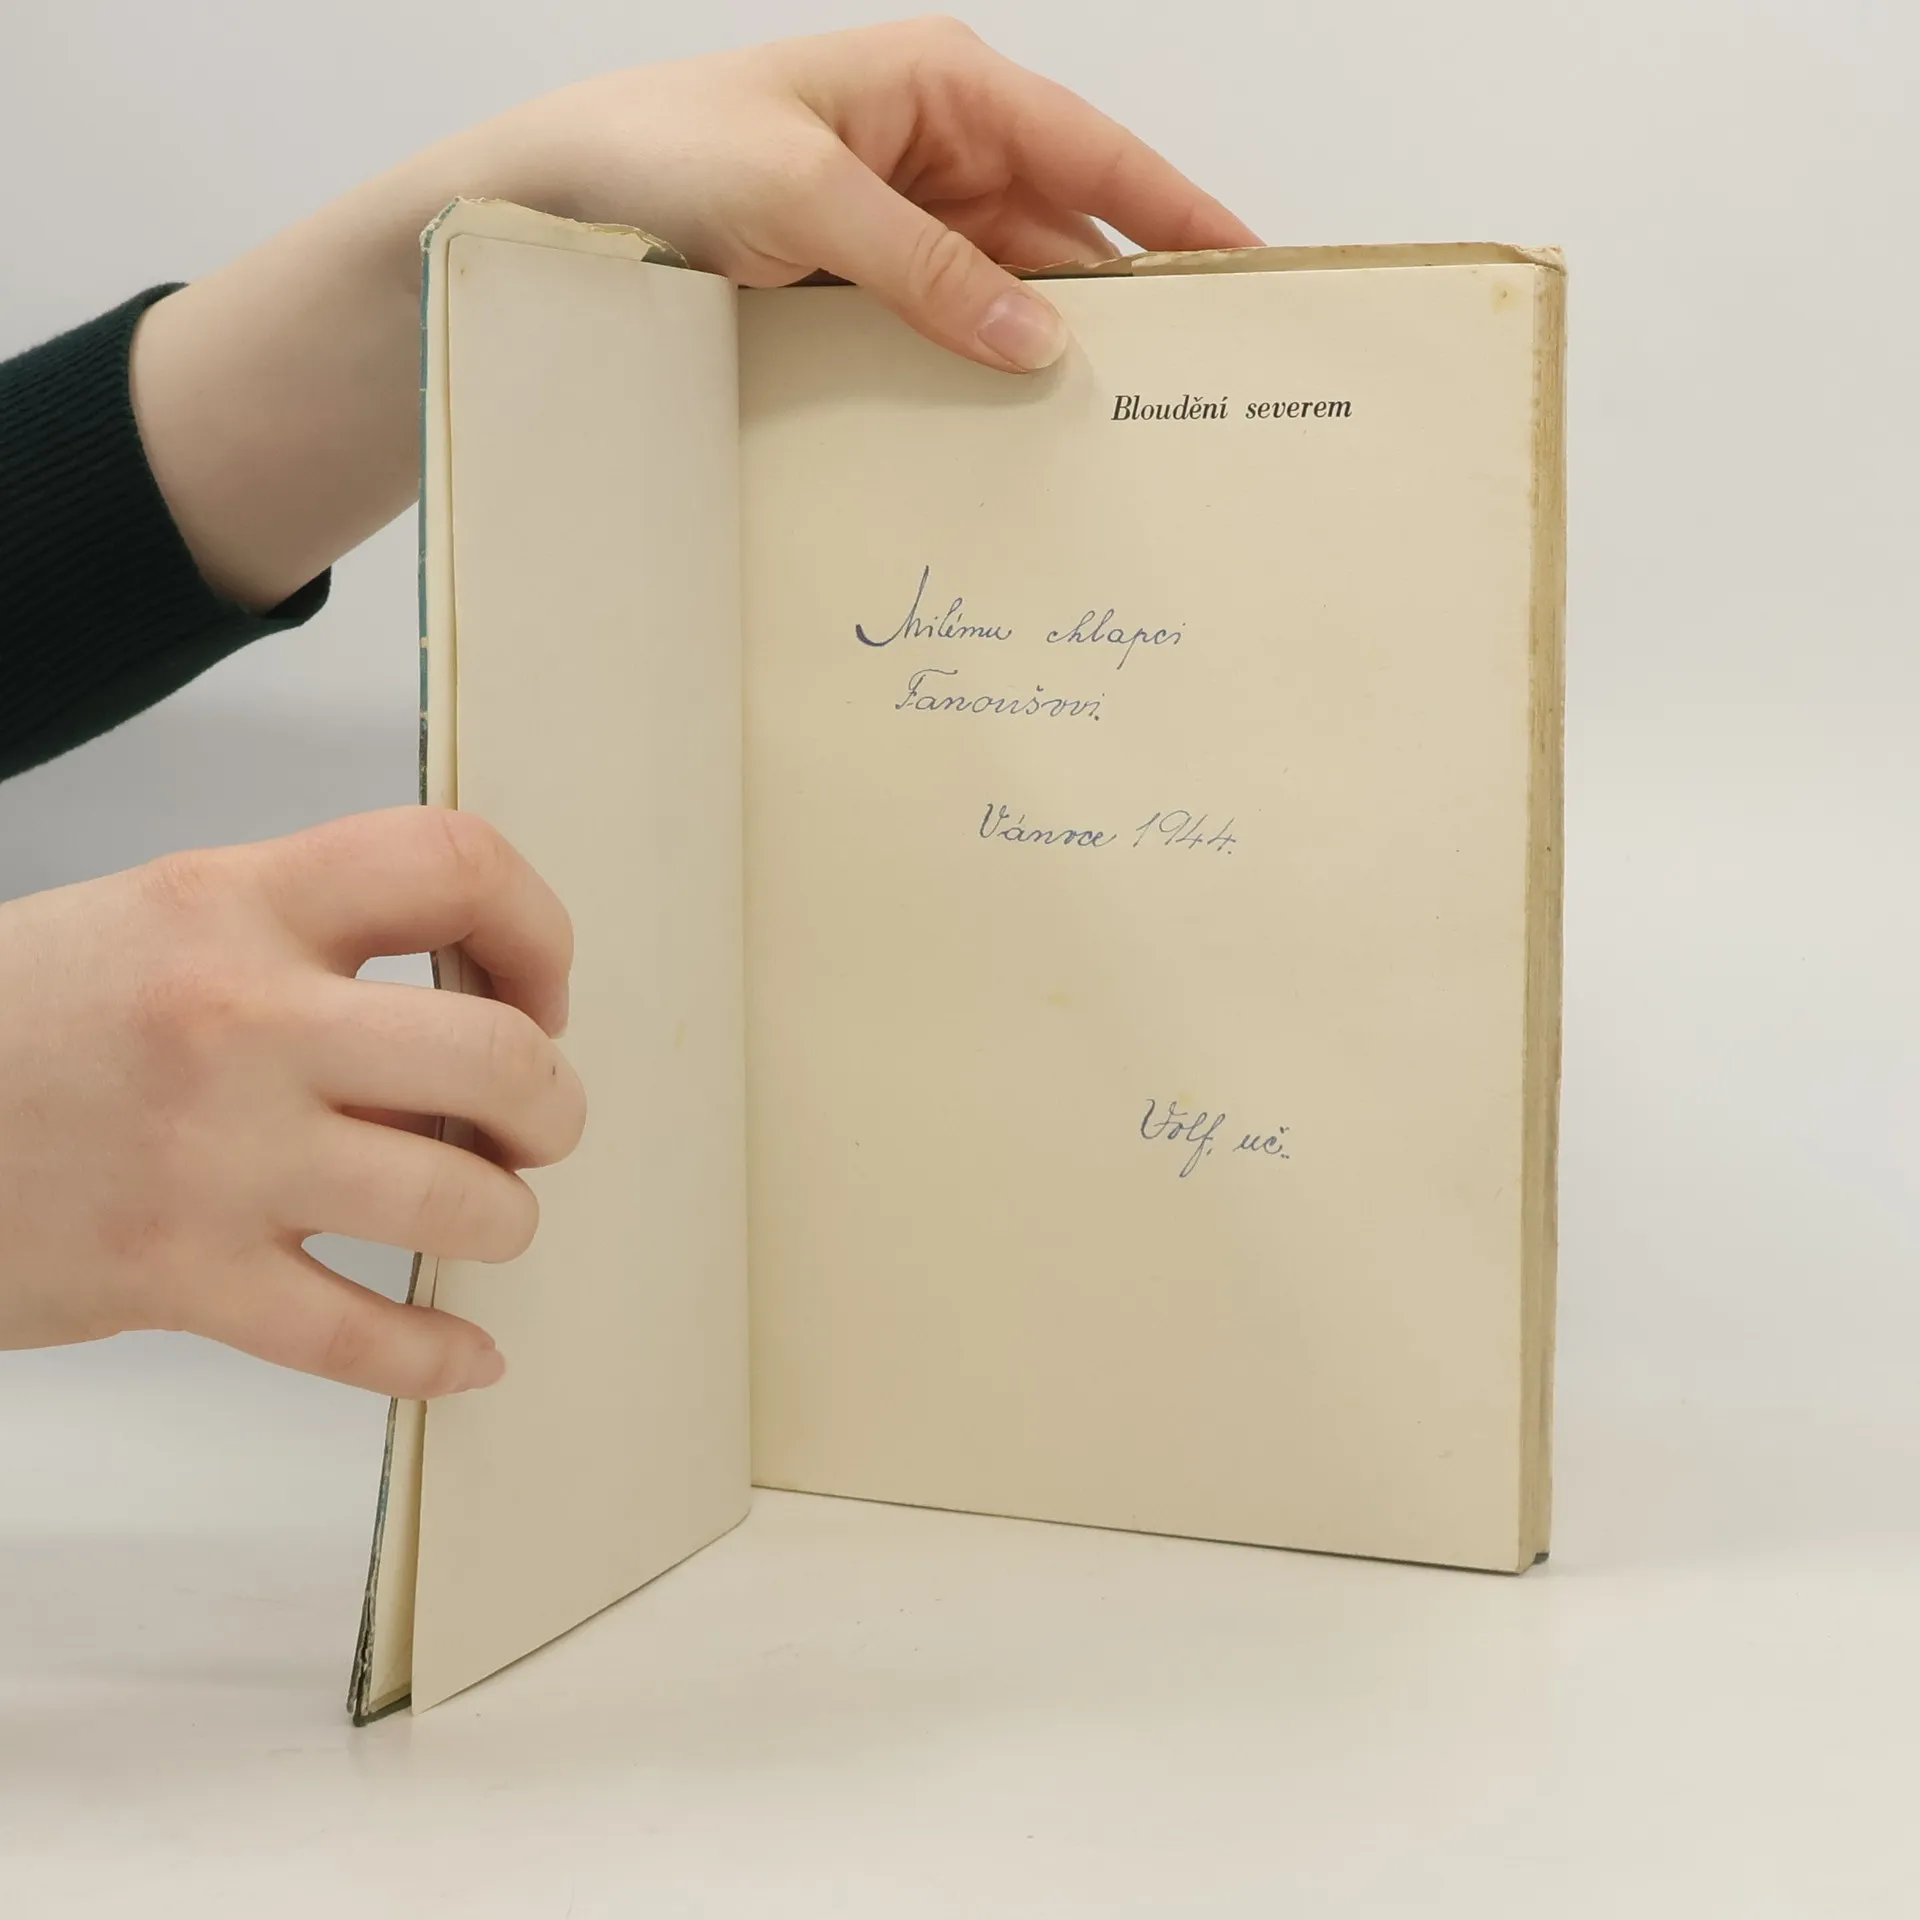 Bloudění severem
Milému chlapci
Fanoušovi.
Vánoce 1944.
Volf, uč.